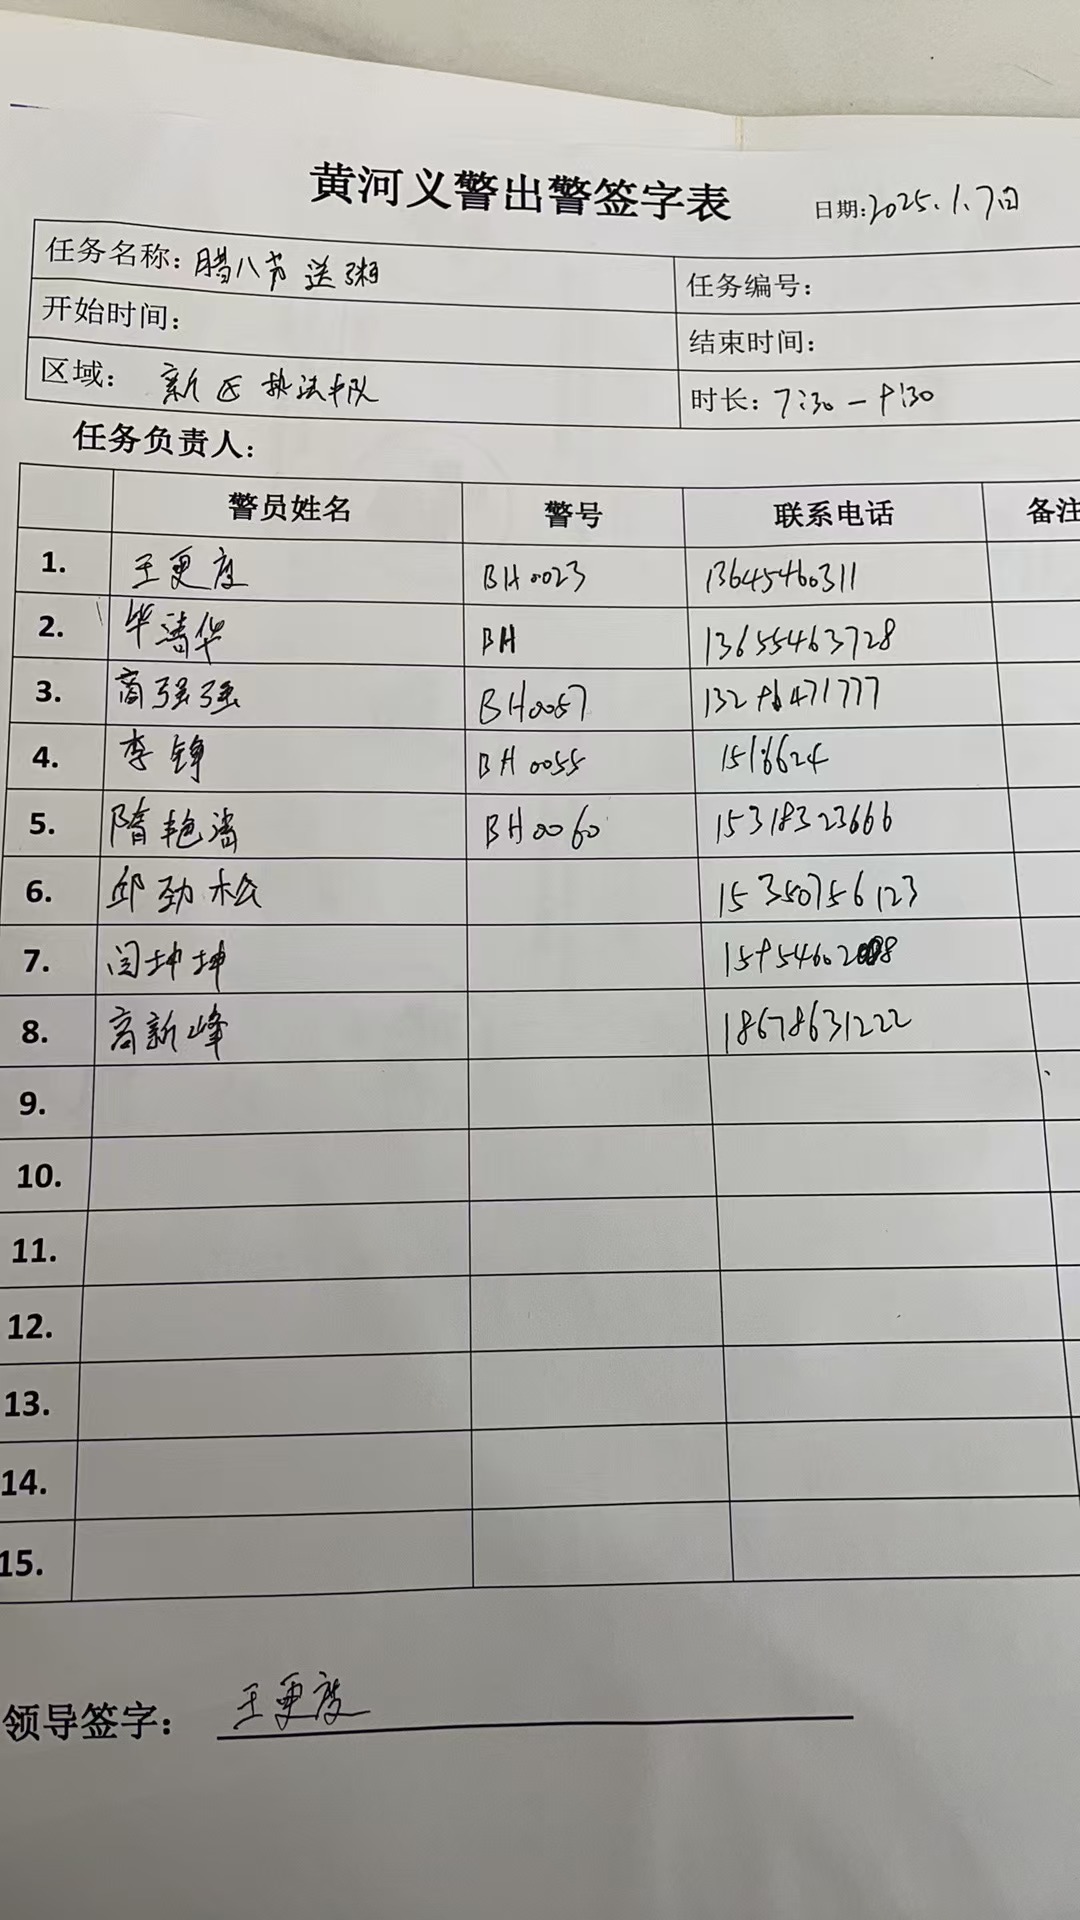 黄河义警出警签字表 日期:2025.1.7日
任务名称: 腊八节送粥 任务编号:
开始时间: 结束时间:
区域: 新区执法中队 时长: 7:30—9:30
任务负责人:
警员姓名 警号 联系电话 备注
1. 王更度 BH0023 13645460311
2. 毕清华 BH 13655463728
3. 商强强 BH0057
4. 李铮 BH0055 1516624
5. 隋艳清 BH0060 15318323666
6. 邱劲松 15350756123
7. 闫坤坤
8. 高新峰 18678631222
9.
10.
11.
12.
13.
14.
15.
领导签字: 王更度